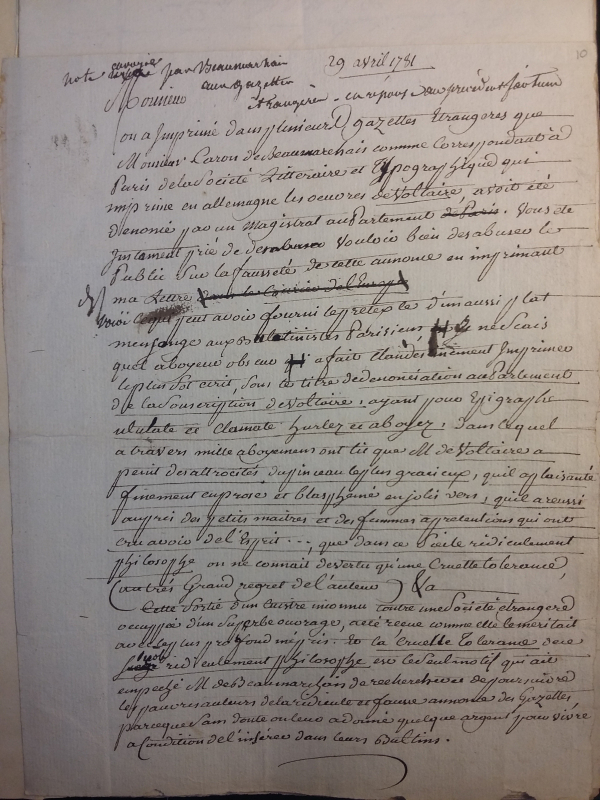 10
note envoyée par Beaumarchais 29 avril 1781
aux gazettes
Monsieur étrangères - en réponse au précédent factum
on a Imprimé dans plusieurs gazettes Etrangeres que
Monsieur Caron de Beaumarchais comme Correspondant à
Paris de la Société Littéraire et Typographique qui
imprime en allemagne les oeuvres de Voltaire, avoit été
dénoncé par un Magistrat au Parlement de Paris. Vous ete
Instament prié de vouloir bien desabuser le
Public sur la fausseté de cette annonce en imprimant
ma Lettre dans le Courier de l'Europe
Voici ce qui peut avoir fourni le pretexte d'un aussi plat
mensonge aux Bulletinistes Parisiens je ne scais
quel aboyeur obscur a fait clandestinement Imprimer
le plus sot écrit, sous le titre de denonciation au Parlement
de la Souscription de Voltaire, ayant pour Epigraphe
ululate et clamate hurlez et aboyez, dans lequel
a travers mille aboyemens ont lit que M. de Voltaire a
peint des attrocités du pinceau le plus gracieux, qu'il a plaisanté
finement en prose et blasphémé en jolis vers, qu'il a reussi
auprès des petits maitres et des femmes a pretentions qui ont
cru avoir de l'Esprit ..., que dans ce Siecle ridiculement
philosophe on ne connait de vertu qu'une Cruelle tolerance
(autrès Grand regret de l'auteur) &a
Cette Sortie d'un Cuistre inconnu contre une Société étrangere
occupée d'un Superbe ouvrage, a été reçue comme elle le meritait
avec le plus profond mépris. Et la Cruelle Tolerance de ce
Siecle ridiculement philosophe est le Seul motif qui ait
empeché M. de Beaumarchais de rechercher et de poursuivre
les pauvres auteurs de la ridicule et fausse annonce des Gazettes
parceque Sans doute on leur a donné quelque argent pour vivre
a Condition de l'inserer dans leurs Bultins.